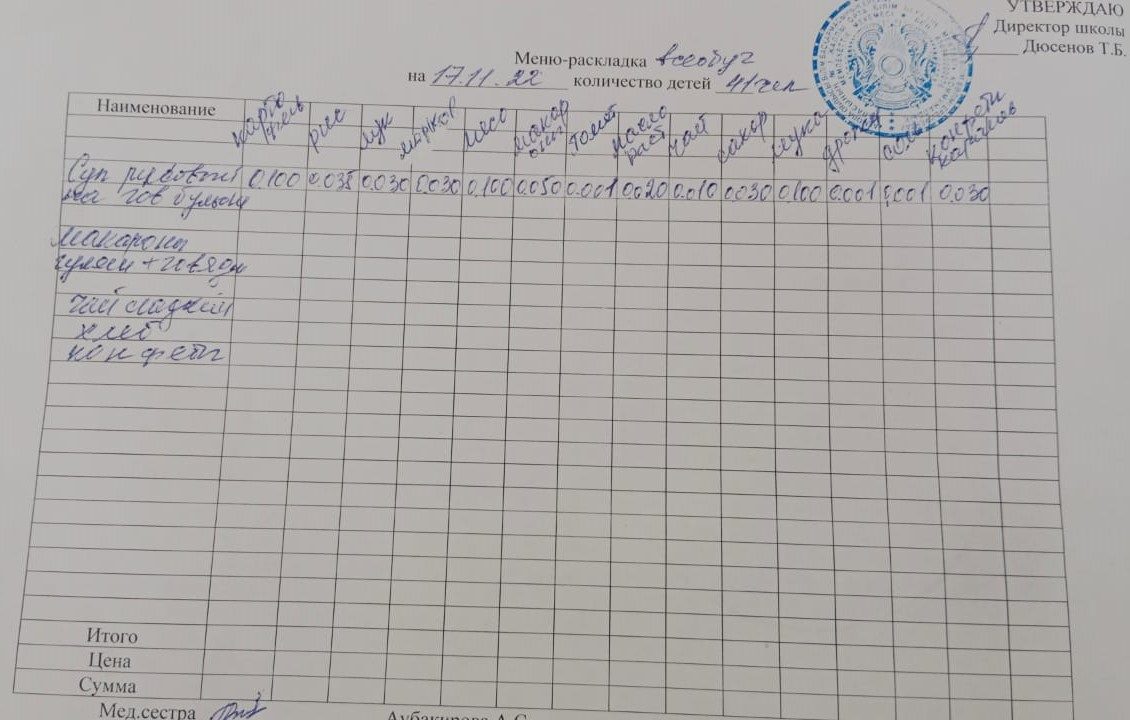 УТВЕРЖДАЮ
Директор школы
Дюсенов Т.Б.
Меню-раскладка всеобуч
на 17.11.22 количество детей 41 чел
Наименование картофель рис лук морков мясо макароны томат масло раст чай сахар мука дрожжи соль конфеты карамель
Суп рисовый 0.100 0.035 0.030 0.030 0.100 0.050 0.001 0.020 0.010 0.030 0.100 0.001 0,001 0.030
на гов бульоне
Макароны
гуляш + говядин
чай сладкий
хлеб
конфеты
Итого
Цена
Сумма
Мед.сестра Аубакирова А.С